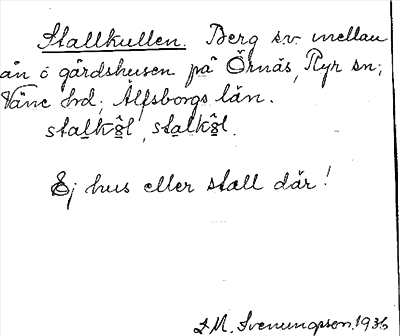 Stallkullen. Berg sv. mellan
ån o gårdshusen på Örnäs, Ryr sn;
Väne hd; Älfsborgs län.
stalkôl, stalkôl.
Ej hus eller stall där!
I.M. Svenungsson. 1936